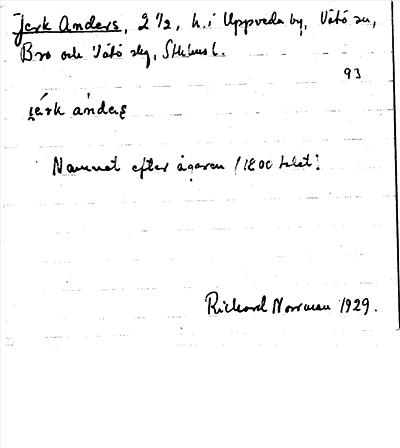 Jerk Anders, 2 1/2, h. i Uppveda by, Vätö sn,
Bro och Vätö skg, Sthlms l.
93
jèrk ánders
Namnet efter ägaren (1800 talet).
Richard Norrman 1929.